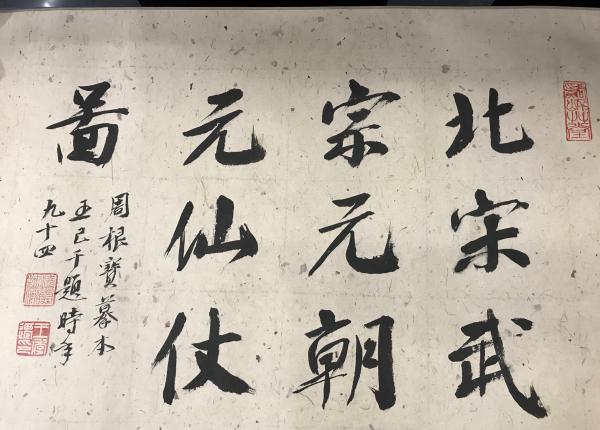 北宋武
宗元朝
元仙仗
图
周根寶摹本
王己千題時年
九十四